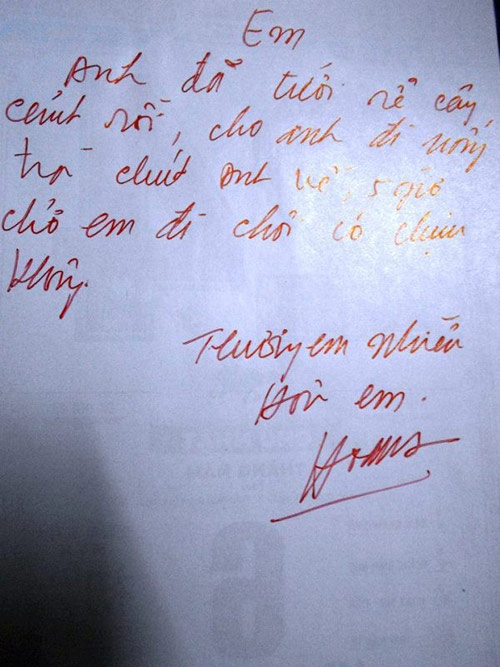 Em
Anh đã tưới cây
rồi, cho anh đi uống
trà chút anh về, 5 giờ
chở em đi chơi có chịu
không.
Thương em nhiều
Hôn em.